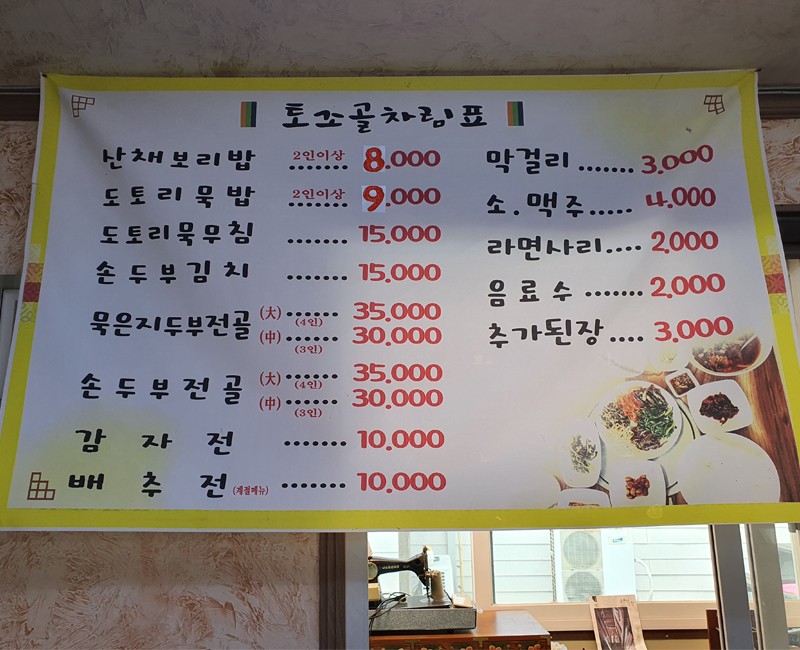 토소골차림표
산채보리밥 2인이상 ....... 8.000
도토리묵밥 2인이상 ....... 9.000
도토리묵무침 ....... 15.000
손두부김치 ....... 15.000
묵은지두부전골 (大) ....... 35.000
(4인)
(中) ....... 30.000
(3인)
손두부전골 (大) ....... 35.000
(4인)
(中) ....... 30.000
(3인)
감자전 ....... 10.000
배추전 (계절메뉴) ....... 10.000
막걸리 ....... 3.000
소.맥주 ..... 4.000
라면사리 .... 2.000
음료수 ....... 2.000
추가된장 .... 3.000